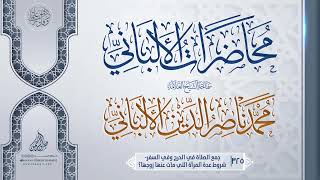 محاضرات الألباني
سماحة الشيخ العلامة
محمد ناصر الدين الألباني
٣٢٥
جمع الصلاة في الحرج وفي السفر-
شروط عدة المرأة التي مات عنها زوجها؟